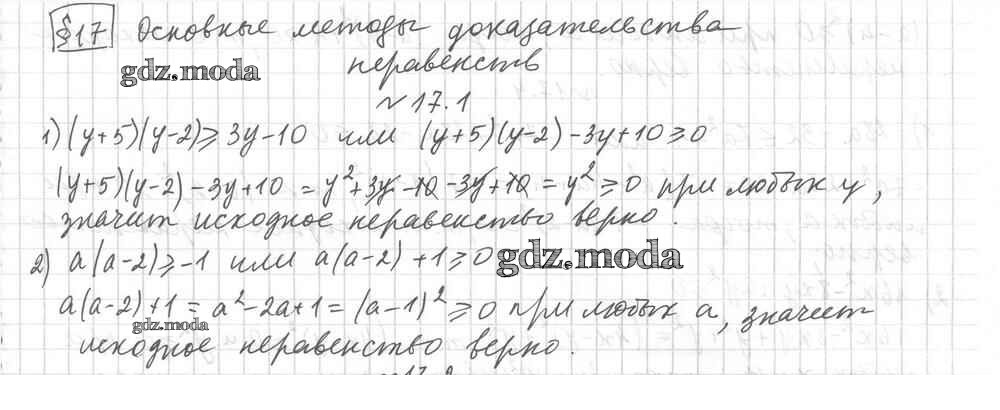 §17 Основные методы доказательства
gdz.moda
неравенств
№17.1
1) (y+5)(y-2)≥3y-10 или (y+5)(y-2)-3y+10≥0
(y+5)(y-2)-3y+10 = y²+3y-10-3y+10 = y²≥0 при любых y,
значит исходное неравенство верно.
2) a(a-2)≥-1 или a(a-2)+1≥0
gdz.moda
a(a-2)+1 = a²-2a+1 = (a-1)²≥0 при любых a, значит
gdz.moda
исходное неравенство верно.